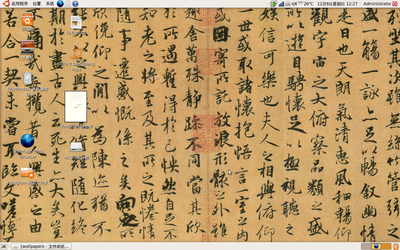 应用程序 位置 系统
26°C 12月6日星期日 12:27 Administrator
一觴一詠亦足以暢敘幽情
是日也天朗氣清惠風和暢仰
觀宇宙之大俯察品類之盛
所以遊目騁懷足以極視聽之
娛信可樂也夫人之相與俯仰
一世或取諸懷抱悟言一室之
或因寄所託放浪形骸之外雖
趣舍萬殊靜躁不同當其欣
於所遇暫得於己怏然自足不
知老之將至及其所之既惓情
隨事遷感慨係之矣向之
欣俛仰之間以為陳跡猶不
隨化終
期於盡古人云死生亦大矣豈
攬昔人興感之由
若合一契未嘗不臨文嗟悼
[wallpapers - 文件浏览...